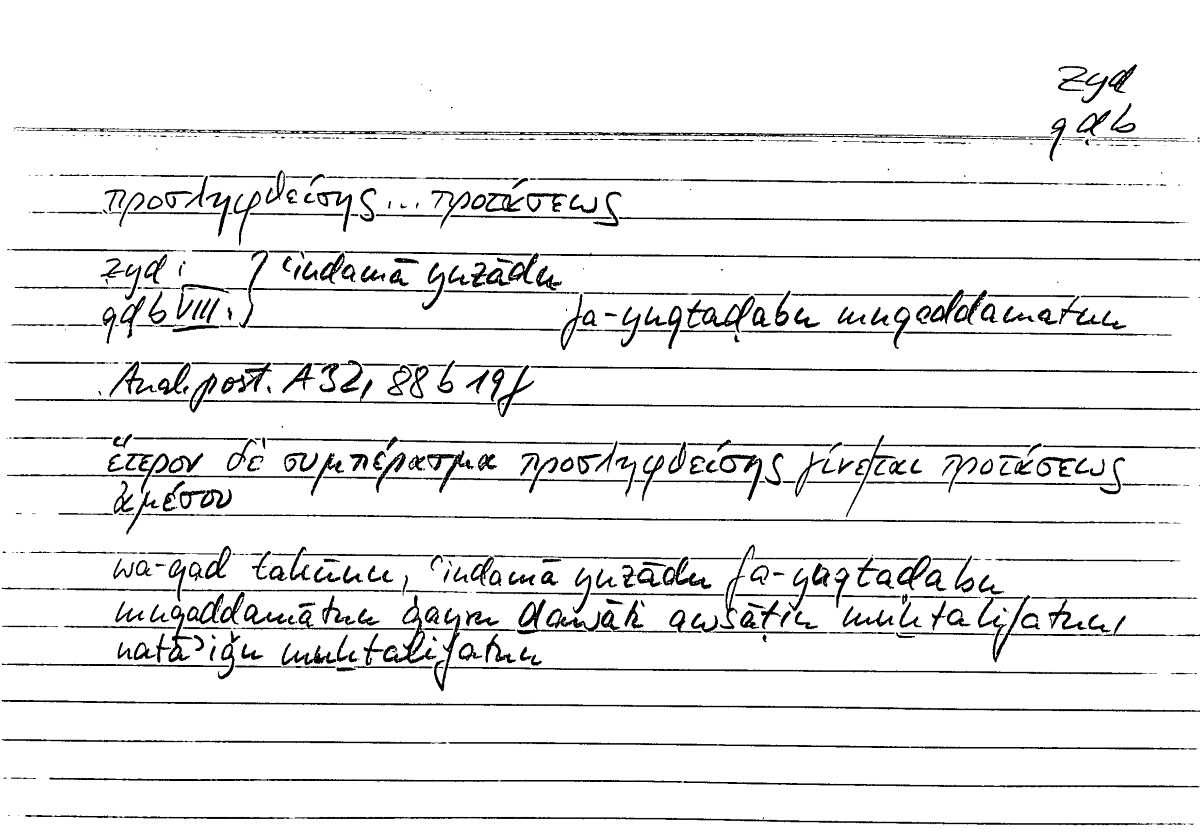 zyd
qḍb
προσληφθείσης ... προτάσεως
zyd : } ʿindamā yuzādu
qḍb VIII. } fa-yuqtaḍabu muqaddamatun
Anal. post. A 32, 88 b 19f
ἕτερον δὲ συμπέρασμα προσληφθείσης γίνεται προτάσεως
ἀμέσου
wa-qad takūnu, ʿindamā yuzādu fa-yuqtaḍabu
muqaddamātun ġayru ḏawāti awsāṭin muḫtalifatun,
natāʾiǧu muḫtalifatun